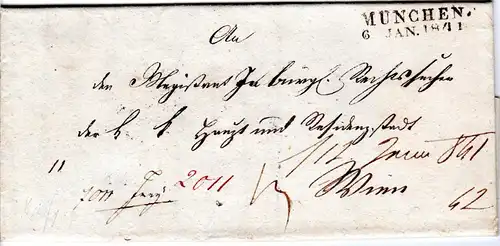 MÜNCHEN.
6 JAN. 1841
An
den Magistrat In bürgl. Rechtssachen
der k. k. Haupt und Residenzstadt
/12 Jenn 841
Wien
2011
2011
62
11